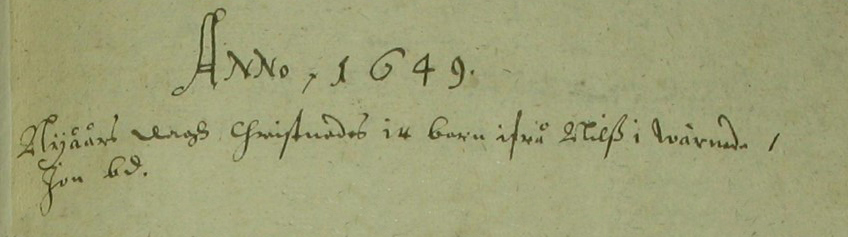 Anno, 1649.
Nyåårs dagh Christnades it barn ifrå Nilß i Wärnede /
Jon bd.